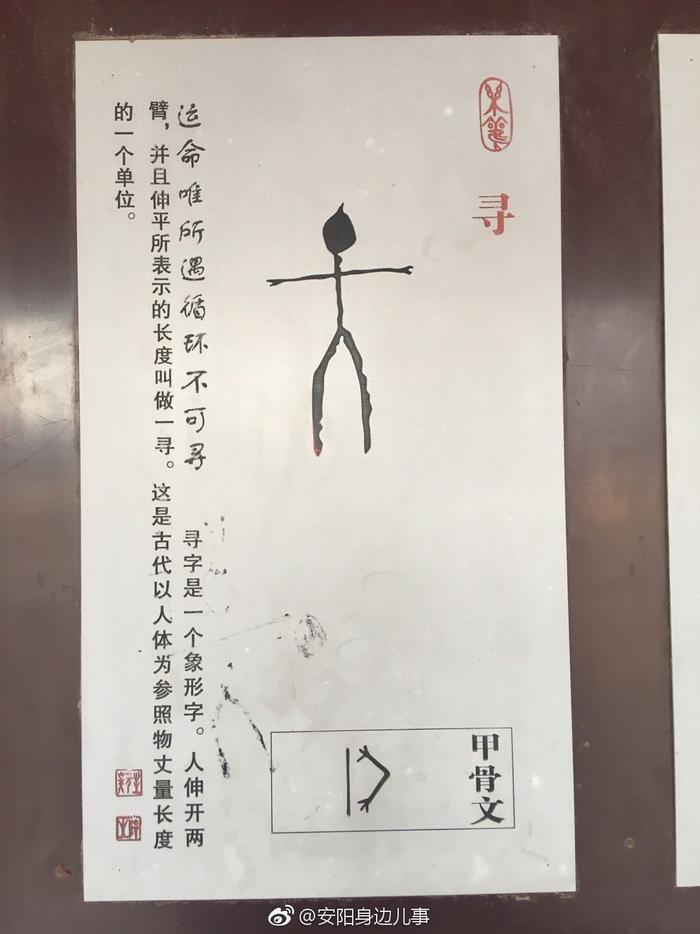 寻
运命唯所遇循环不可寻 寻字是一个象形字。人伸开两
臂，并且伸平所表示的长度叫做一寻。这是古代以人体为参照物丈量长度
的一个单位。
甲骨文
@安阳身边儿事